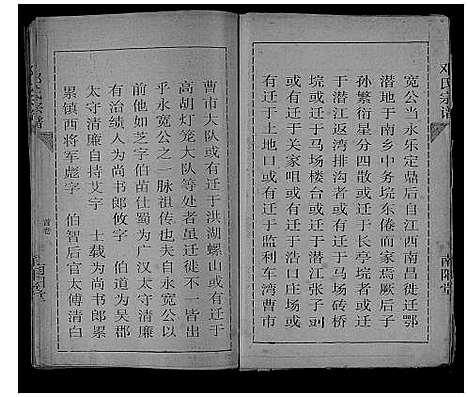 邓氏宗谱
宽公当永乐定鼎后自江西南昌徙迁鄂
潜地于南乡中务垸东倦而家焉厥后子
孙繁衍星分四散或迁于长亭垸者或迁
于潜江返湾排沟者或有迁于马场砖桥
垸或迁于马场楼台或迁于潜江张子剅
或有迁于关家咀或有迁于浩口庄场或
或有迁于上地口或有迁于监利车湾曹市
南阳堂
曹市大队或有迁于洪湖螺山或有迁于
高胡灯笼大队等处者虽迁徙不一皆出
乎永宽公之一脉祖传也夫自永宽公以
前他如芝字伯苗仕蜀为广汉太守清廉
有治绩人为尚书郎攸字 伯道为吴郡
太守清廉自持艾字 士载为尚书郎累
累镇西将军彪字 伯智后官太傅清白
首卷